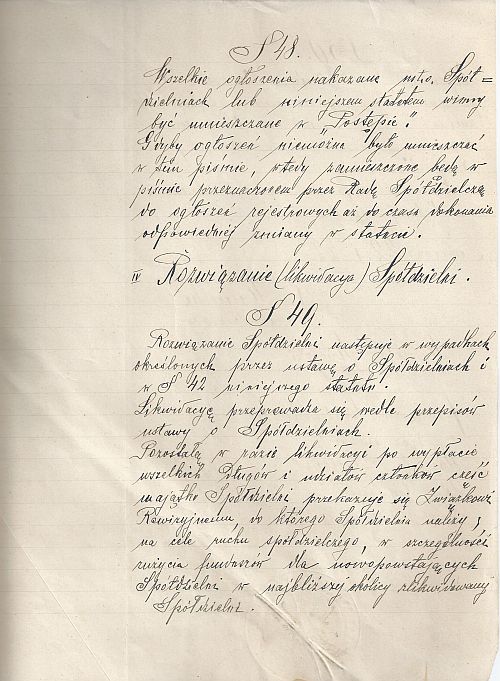 § 48.
Wszelkie ogłoszenia nakazane ust. o. Spół=
dzielniach lub niniejszem statutem winny
być umieszczane w "Postępie".
Gdyby ogłoszeń niemożna było umieszczać
w tem piśmie, wtedy zamieszczone będą w
piśmie przeznaczonem przez Radę Spółdzielczą
do ogłoszeń rejestrowych aż do czasu dokonania
odpowiedniej zmiany w statucie.
IV Rozwiązanie (likwidacya) Spółdzielni.
§ 49.
Rozwiązanie Spółdzielni następuje w wypadkach
określonych przez ustawę o Spółdzielniach i
w § 42 niniejszego statutu.
Likwidacyę przeprowadza się wedle przepisów
ustawy o Spółdzielniach.
Pozostałą w razie likwidacyi po wypłacie
wszelkich długów i udziałów członków część
majątku Spółdzielni przekazuje się Związkowi
Rewizyjnemu, do którego Spółdzielnia należy,
na cele ruchu spółdzielczego, w szczególności
użycia funduszów dla nowopowstających
Spółdzielni w najbliższej okolicy zlikwidowanej
Spółdzielni.